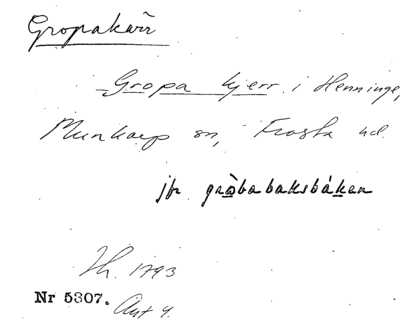 Gropakärr
Gropa kjerr i Henninge,
Munkarp sn, Frosta hd.
jfr gròbabaksbákan
Th. 1793
Nr 5307. Aut 4.